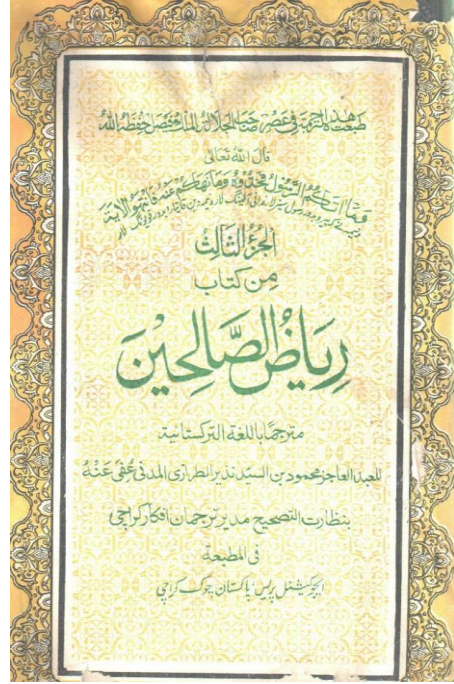 طبعت هذه الترجمة في عصر صاحب الجلالة الملك فيصل حفظه الله
قال الله تعالى
فما آتاكم الرسول فخذوه وما نهاكم عنه فانتهوا الآية
الجزء الثالث
من كتاب
رِيَاضُ الصَّالِحِيْنَ
مترجمًا باللغة التركستانية
للعبد العاجز محمود بن السيّد نذير الطرازى المدنى عُفِىَ عَنْهُ
بنظارت التصحيح مدير ترجمان افكار كراچى
فى المطبعة
ایجوکیشنل پریس پاکستان چوک کراچی